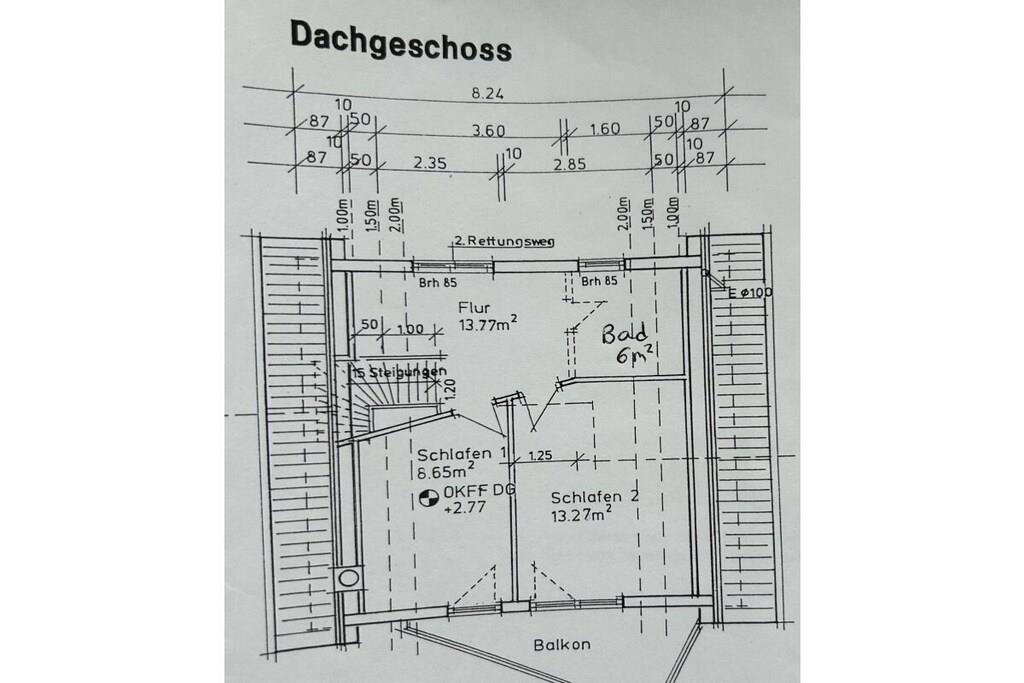 Dachgeschoss
8.24
10
10
87
50
3.60
1.60
50
87
10
10
87
50
2.35
10
2.85
50
87
1.00m
1.50m
2.00m
2.00m
1.50m
1.00m
2. Rettungsweg
Brh 85
Brh 85
E ø100
Flur
13.77m²
Bad
6m²
50
1.00
15 Steigungen
1.20
Schlafen 1
8.65m²
OKFF DG
+2.77
1.25
Schlafen 2
13.27m²
Balkon